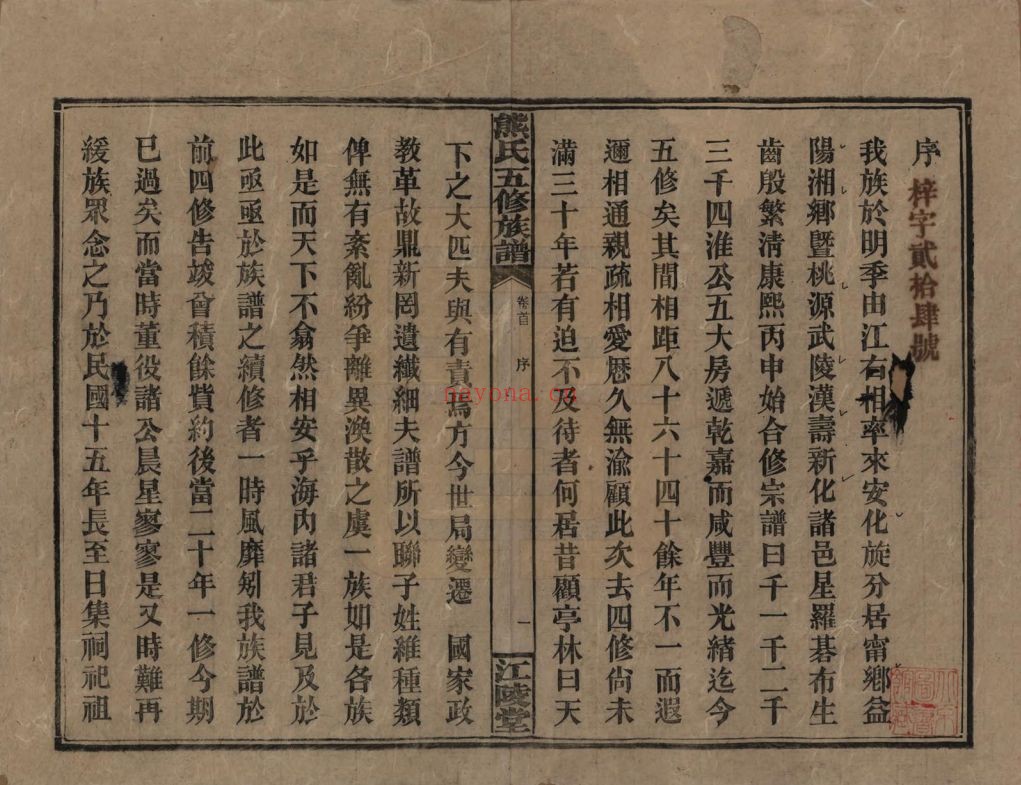 序
梓字貳拾肆號
我族於明季由江右相率來安化旋分居甯鄉益
陽湘鄉暨桃源武陵漢壽新化諸邑星羅碁布生
齒殷繁清康熙丙申始合修宗譜曰千一千二千
三千四淮公五大房遞乾嘉而咸豐而光緒迄今
五修矣其間相距八十六十四十餘年不一而遐
邇相通親疏相愛歷久無渝顧此次去四修尙未
滿三十年若有迫不及待者何居昔顧亭林曰天
熊氏五修族譜
卷首
序
一
江陵堂
下之大匹夫與有責焉方今世局變遷 國家政
教革故鼎新罔遺纖細夫譜所以聯子姓維種類
俾無有紊亂紛爭離異渙散之虞一族如是各族
如是而天下不翕然相安乎海內諸君子見及於
此亟亟於族譜之續修者一時風靡矧我族譜於
前四修告竣會積餘貲約後當二十年一修今期
已過矣而當時董役諸公晨星寥寥是又時難再
緩族眾念之乃於民國十五年長至日集祠祀祖